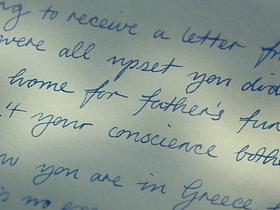 ng to receive a letter fr
were all upset you did
home for father's fun
't your conscience bothe
w you are in Greece
is no ex